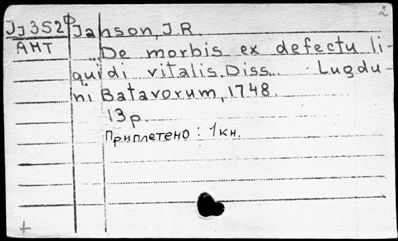 2
Jj352ф Janson, J.R.
AHT „De morbis ex defectu li-
quidi vitalis. Diss. Lugdu-
ni Batavorum, 1748.
13p.
Приплетено: 1 кн.
+